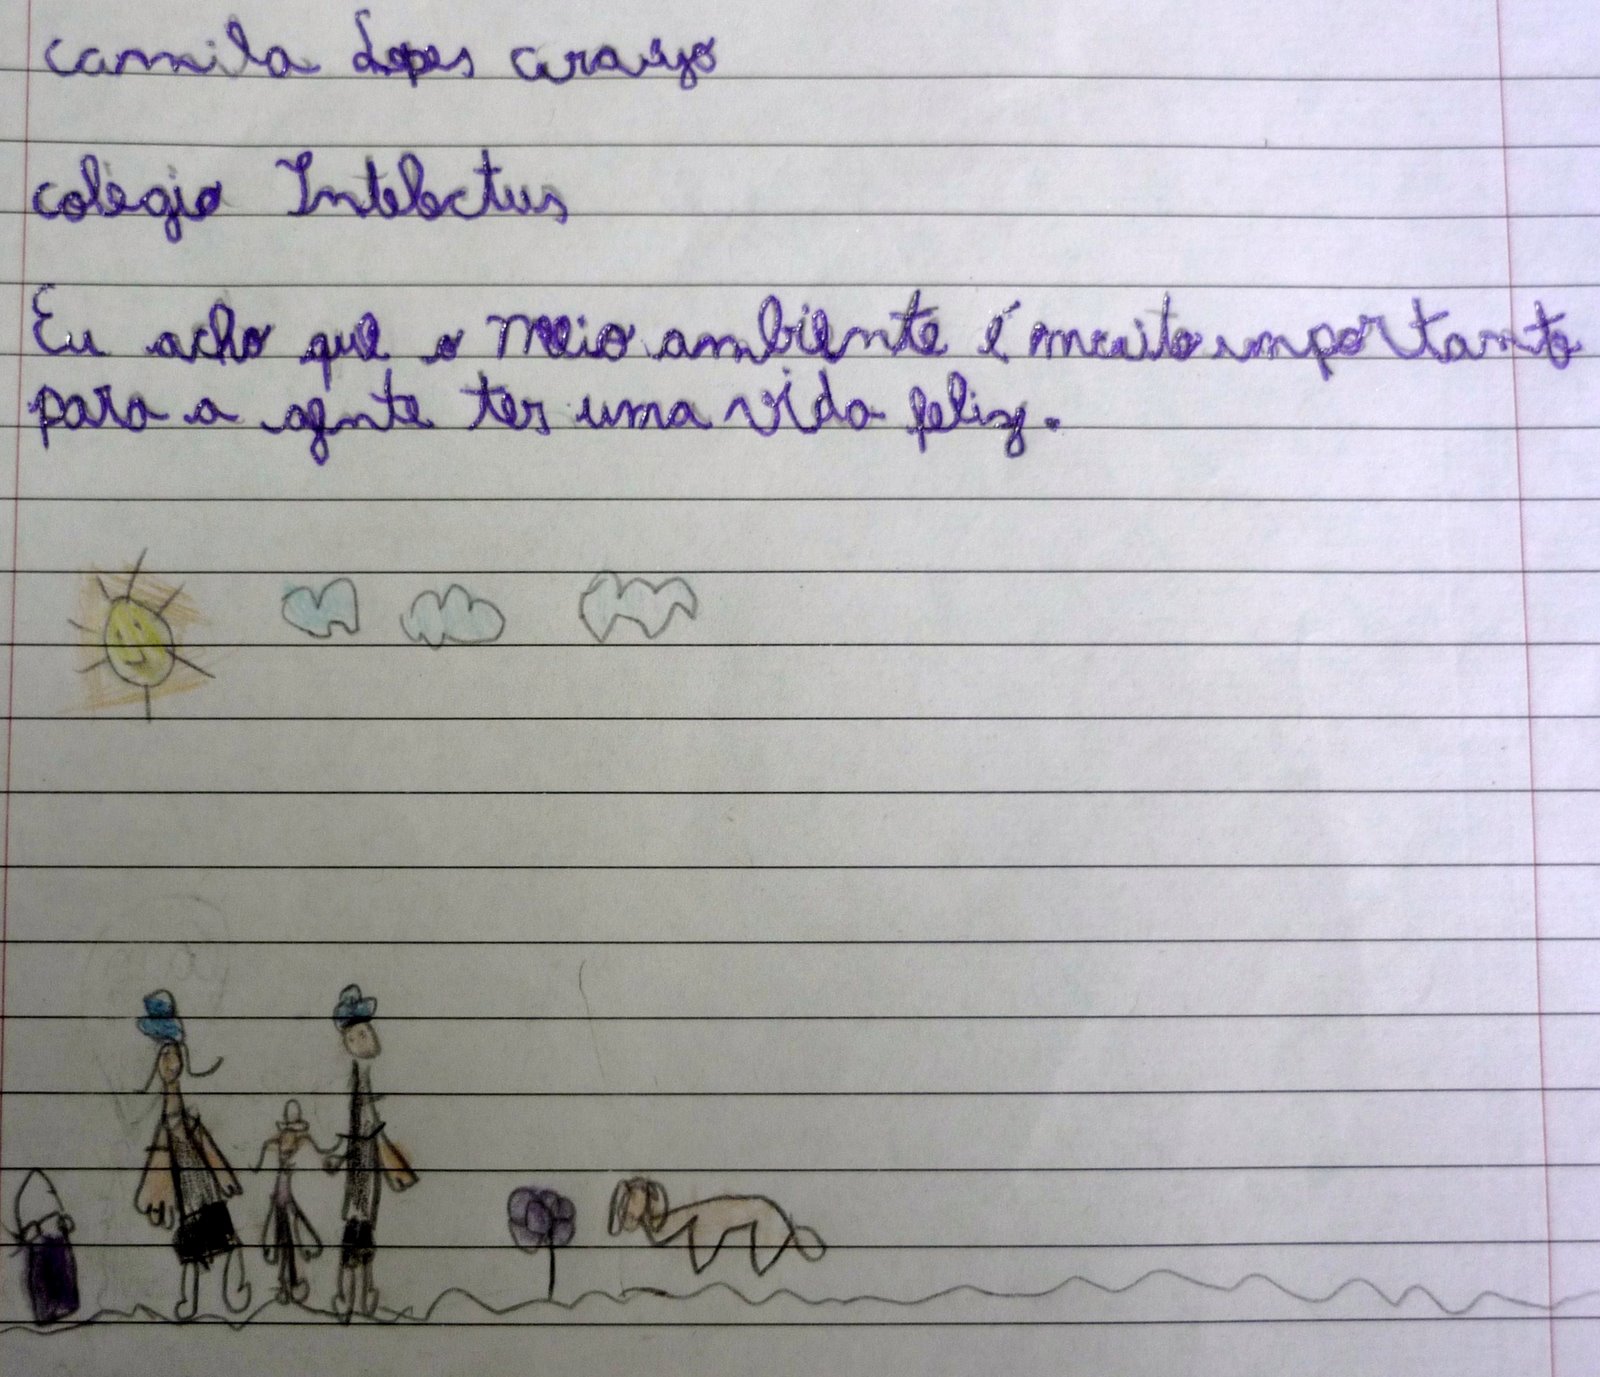 camila Lopes araujo
colégio Intelectus
Eu acho que o meio ambiente é muito importante
para a gente ter uma vida feliz.